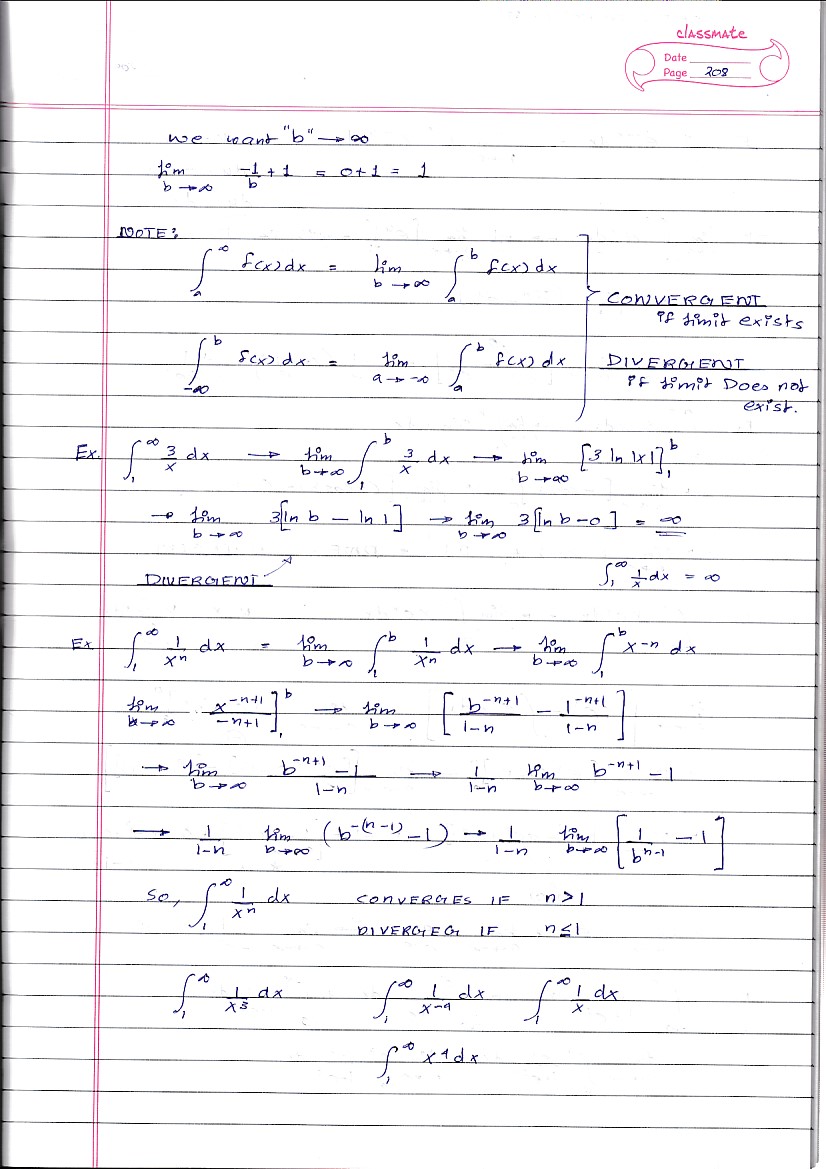 classmate
Date
Page 208
We want "b" → ∞
lim b→∞ -1/b + 1 = 0+1 = 1
NOTE:
∫₁ₐ^∞ f(x)dx = lim b→∞ ∫ₐ^b f(x)dx
CONVERGENT
if limit exists
∫₋∞^b f(x)dx = lim a→-∞ ∫ₐ^b f(x)dx
DIVERGENT
if limit Does not
exist.
Ex. ∫₁^∞ 3/x dx → lim b→∞ ∫₁^b 3/x dx → lim b→∞ [3 ln |x|]₁^b
→ lim b→∞ 3[ln b – ln 1] → lim b→∞ 3[ln b – 0] = ∞
DIVERGENT
∫₁^∞ 1/x dx = ∞
Ex. ∫₁^∞ 1/xⁿ dx = lim b→∞ ∫₁^b 1/xⁿ dx → lim b→∞ ∫₁^b x⁻ⁿ dx
lim b→∞ x^(-n+1)/(-n+1)]₁^b → lim b→∞ [b^(-n+1)/(1-n) – 1^(-n+1)/(1-n)]
→ lim b→∞ (b^(-n+1) – 1)/(1-n) → 1/(1-n) lim b→∞ b^(-n+1) – 1
→ 1/(1-n) lim b→∞ (b^(-(n-1)) – 1) → 1/(1-n) lim b→∞ [1/b^(n-1) – 1]
So, ∫₁^∞ 1/xⁿ dx CONVERGES IF n>1
DIVERGEG IF n≤1
∫₁^∞ 1/x³ dx ∫₁^∞ 1/x⁻⁴ dx ∫₁^∞ 1/x dx
∫₁^∞ x⁴ dx